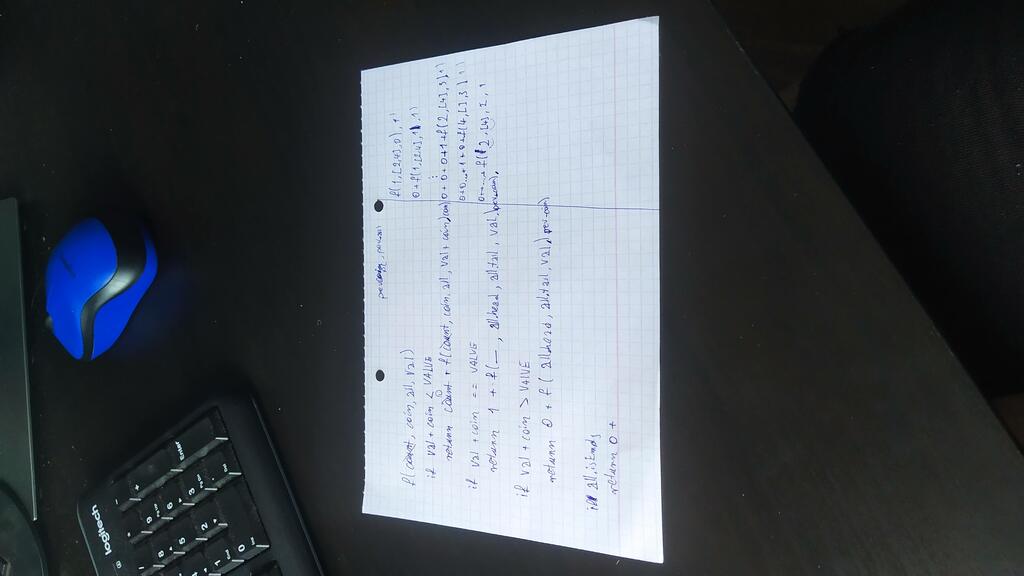 logitech
7 8 9
4 5 6
1 2 3
0
Enter
f(count, coin, all, val)
if val + coin < VALUE
return count + f(count, coin, all, val + coin)
if val + coin == VALUE
return 1 + f(_, all.head, all.tail, val,
if val + coin > VALUE
return 0 + f( all.head, all.tail, val,
all.isEmpty
return 0 +
f(1,[2,4],0),1)
0+f(1,[2,4],1,1)
:
0+0+0+1+f(2,[4],3,1)
0+0...+1+0+f(4,[],3,1)